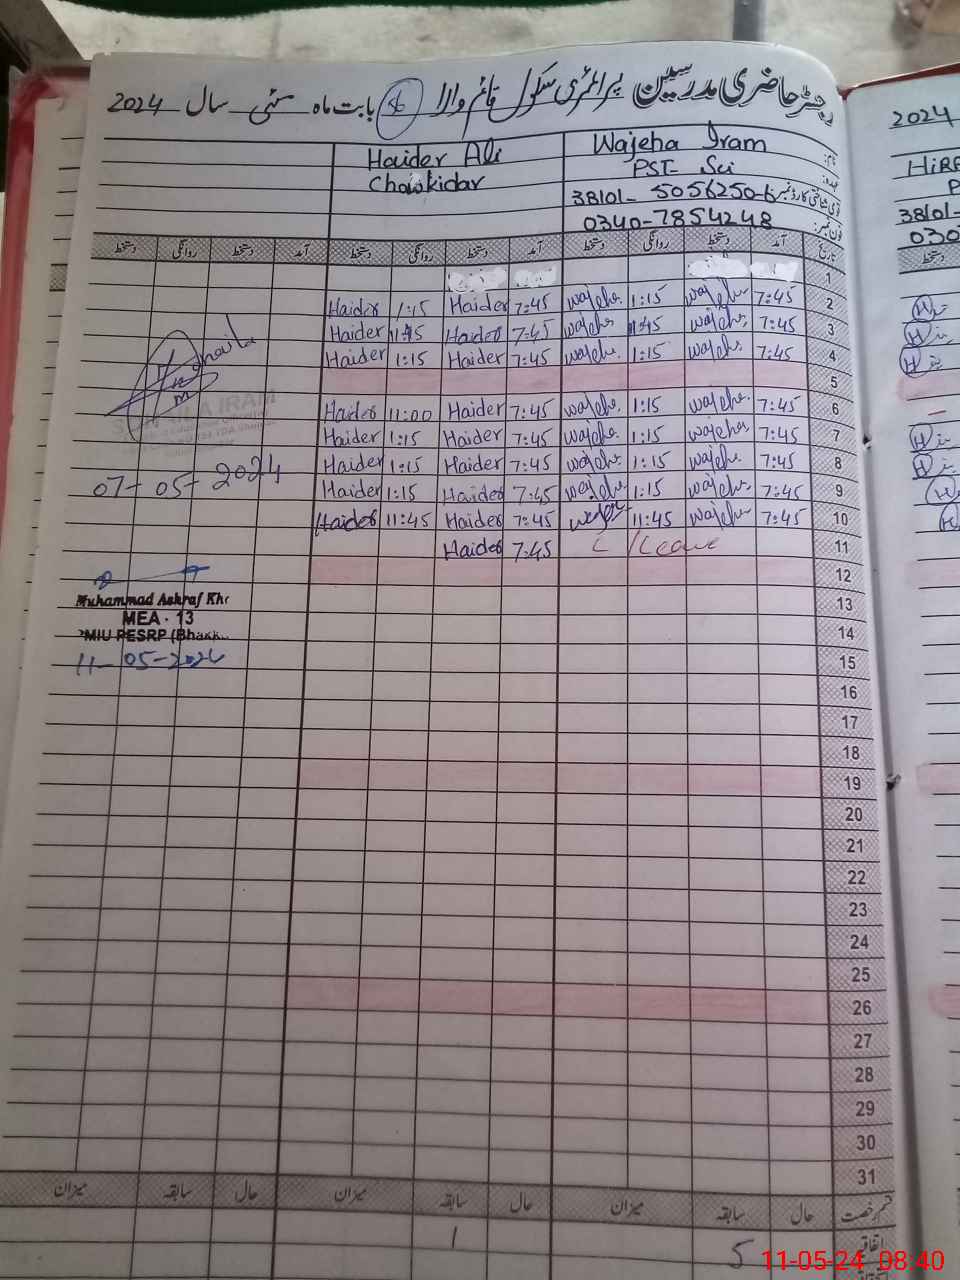 رجسٹر حاضری مدرسین پرائمری سکول قائم والا بابت ماہ مئی سال 2024
نام: Wajeha Iram Haider Ali
عہدہ: PST- Sci Chowkidar
قومی شناختی کارڈ نمبر 38101- 5056250-6
فون نمبر: 0340-7854248
تاریخ آمد دستخط روانگی دستخط آمد دستخط روانگی دستخط آمد دستخط روانگی دستخط
1
2 7:45 Wajeha 1:15 Wajeha 7:45 Haider 1:15 Haider
3 7:45 Wajeha 11:45 Wajeha 7:45 Haider 11:45 Haider
4 7:45 Wajeha 1:15 Wajeha 7:45 Haider 1:15 Haider
5
6 7:45 Wajeha 1:15 Wajeha 7:45 Haider 11:00 Haider
7 7:45 Wajeha 1:15 Wajeha 7:45 Haider 1:15 Haider
8 7:45 Wajeha 1:15 Wajeha 7:45 Haider 1:15 Haider
9 7:45 Wajeha 1:15 Wajeha 7:45 Haider 1:15 Haider
10 7:45 Wajeha 11:45 Wajeha 7:45 Haider 11:45 Haider
11 C/Leave 7:45 Haider
12
13
14
15
16
17
18
19
20
21
22
23
24
25
26
27
28
29
30
31
IRAM
07-05-2024
Muhammad Ashraf Kh
MEA - 13
PMIU PESRP (Bhakk
11-05-2024
قسم رخصت حال سابقہ میزان حال سابقہ میزان حال سابقہ میزان
اتفاقیہ 5 1
2024
HIRA
P
38101-
030
دستخط
11-05-24 08:40